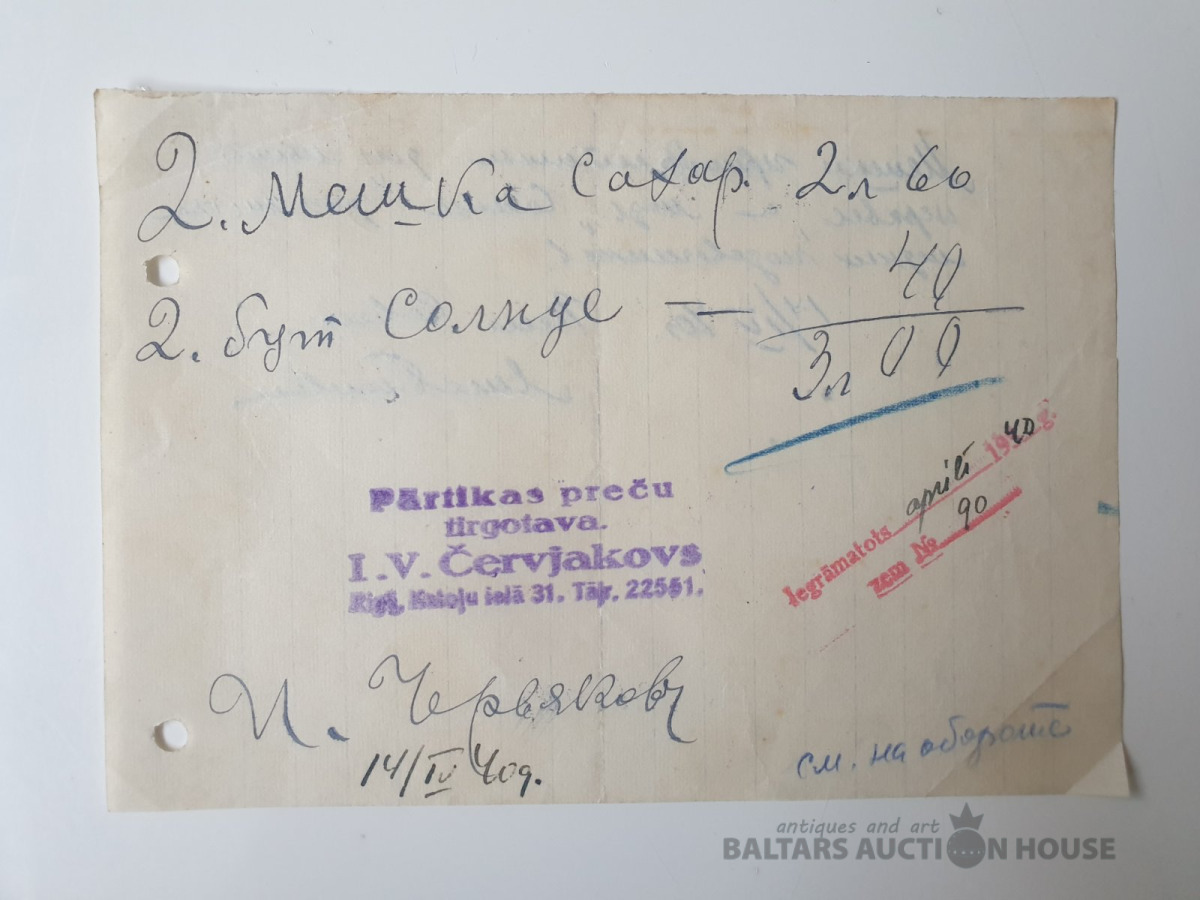 2. Мешка Сахар. 2л 60
2. бут Солнце — 40
3л 00
Pārtikas preču
tirgotava.
I. V. Červjakovs
Rīgā, ielā 31. Tāļr. 22551.
Iegrāmatots aprīlī 1940 g.
zem № 90
И. Червяковъ
14/IV 40г.
см. на обороте
antiques and art
BALTARS AUCTION HOUSE